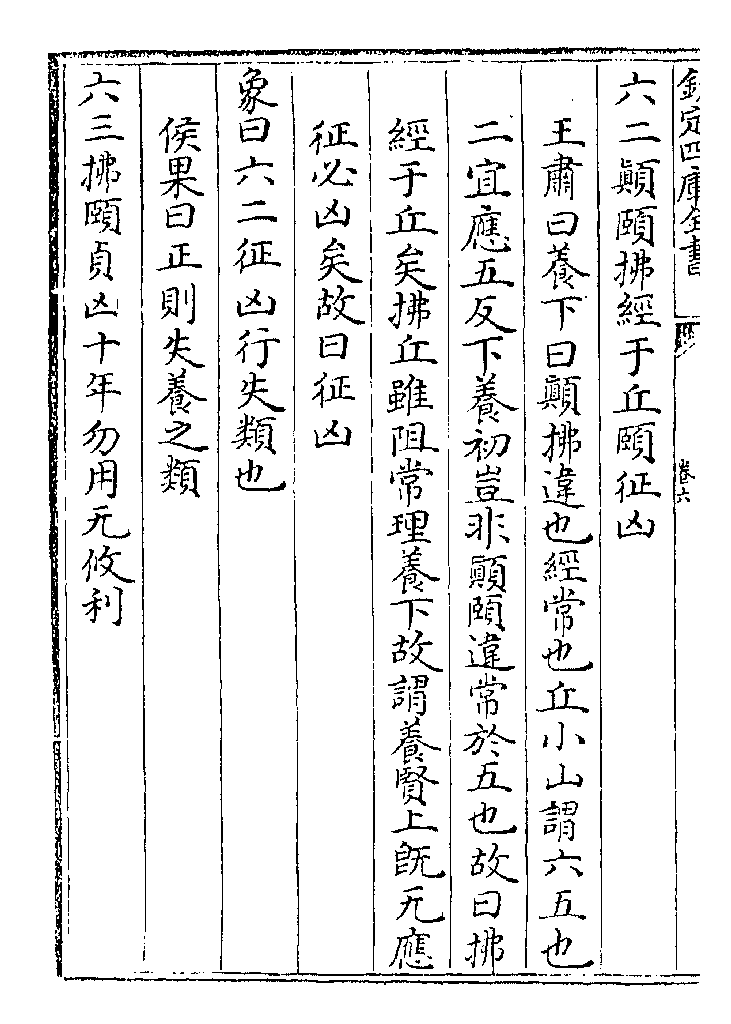 欽定四庫全書
卷六
六二顛頤拂經于丘頤征凶
王肅曰養下曰顛拂違也經常也丘小山謂六五也
二宜應五反下養初豈非顛頤違常於五也故曰拂
經于丘矣拂丘雖阻常理養下故謂養賢上旣无應
征必凶矣故曰征凶
象曰六二征凶行失類也
侯果曰正則失養之類
六三拂頤貞凶十年勿用无攸利